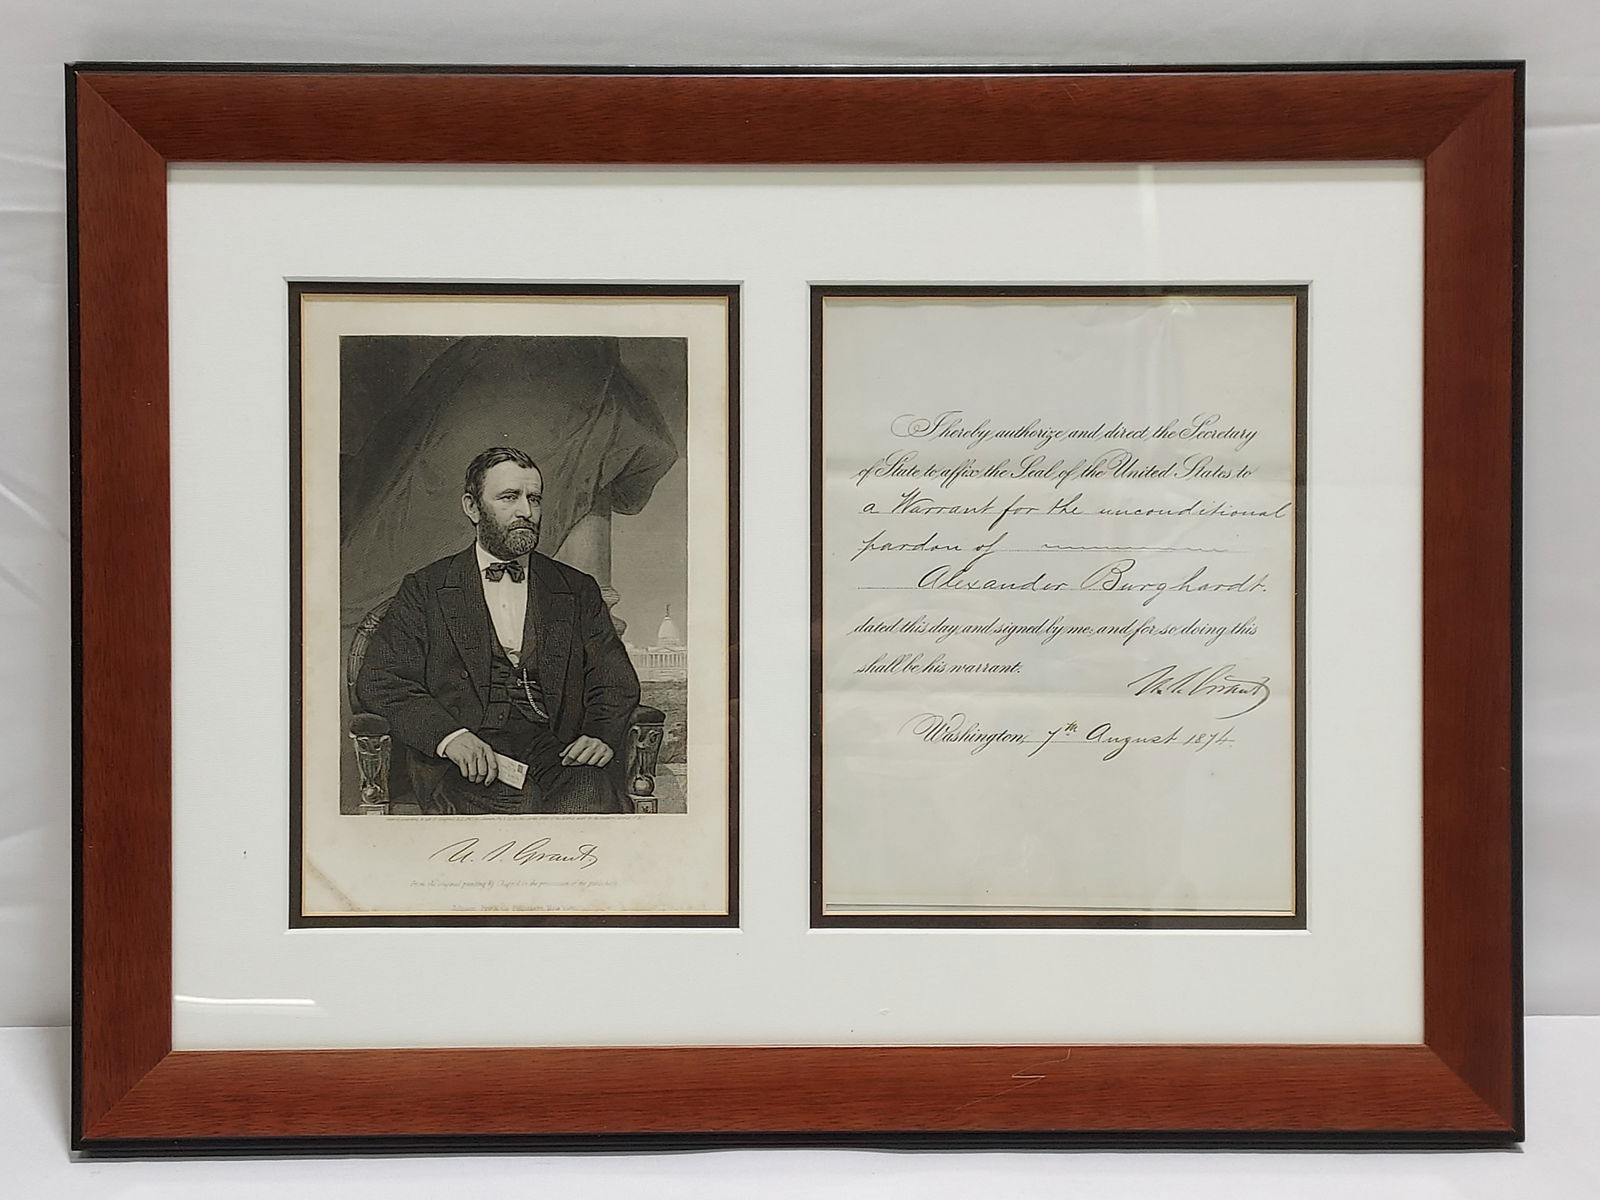 U. S. Grant
From the original painting by Chappel in the possession of the publishers
I hereby authorize and direct the Secretary
of State to affix the Seal of the United States to
a Warrant for the unconditional
pardon of
Alexander Burghardt.
dated this day and signed by me and for so doing this
shall be his warrant.
U. S. Grant
Washington, 7th August 1874.